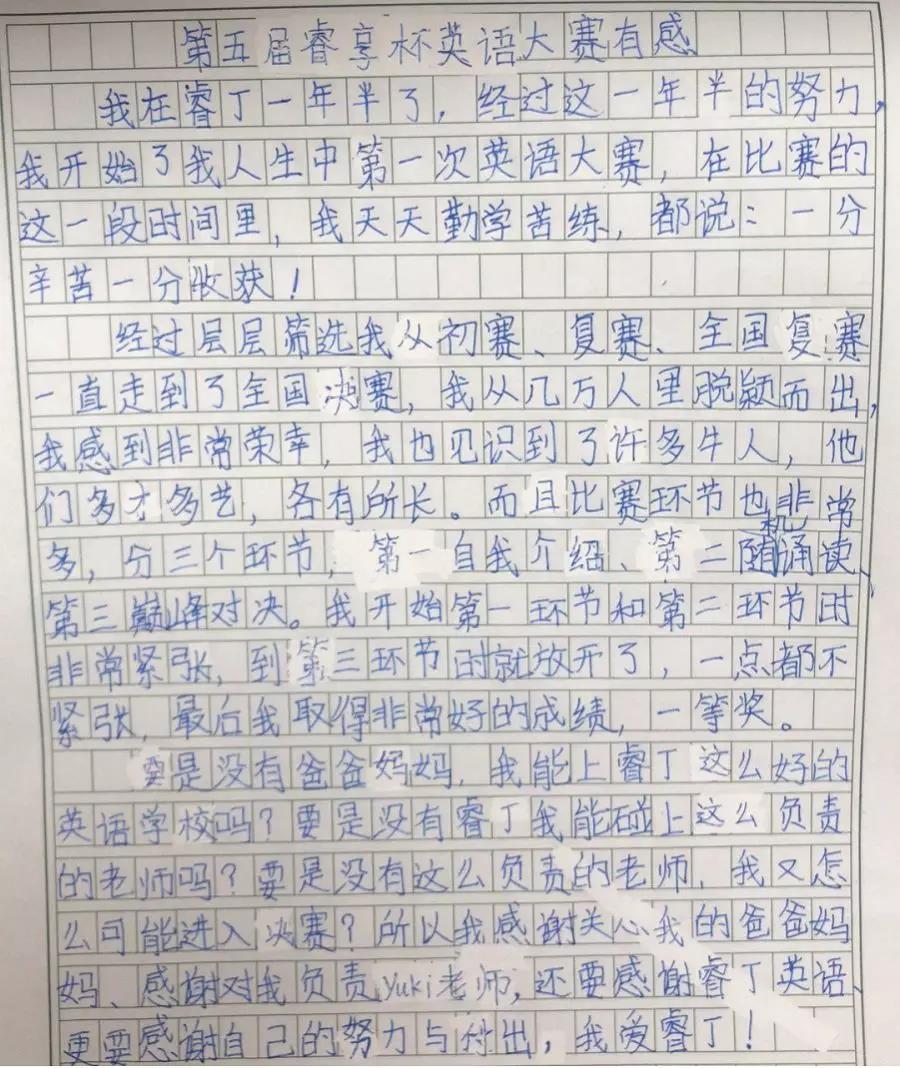 第五届睿享杯英语大赛有感
我在睿丁一年半了，经过这一年半的努力，
我开始了我人生中第一次英语大赛，在比赛的
这一段时间里，我天天勤学苦练，都说：一分
辛苦一分收获！
经过层层筛选我从初赛、复赛、全国复赛
一直走到了全国决赛，我从几万人里脱颖而出，
我感到非常荣幸，我也见识到了许多牛人，他
们多才多艺，各有所长。而且比赛环节也非常
多，分三个环节，第一自我介绍、第二随机诵读、
第三巅峰对决。我开始第一环节和第二环节时
非常紧张，到第三环节时就放开了，一点都不
紧张，最后我取得非常好的成绩，一等奖。
要是没有爸爸妈妈，我能上睿丁这么好的
英语学校吗？要是没有睿丁我能碰上这么负责
的老师吗？要是没有这么负责的老师，我又怎
么可能进入决赛？所以我感谢关心我的爸爸妈
妈、感谢对我负责yuki老师，还要感谢睿丁英语、
更要感谢自己的努力与付出，我爱睿丁！